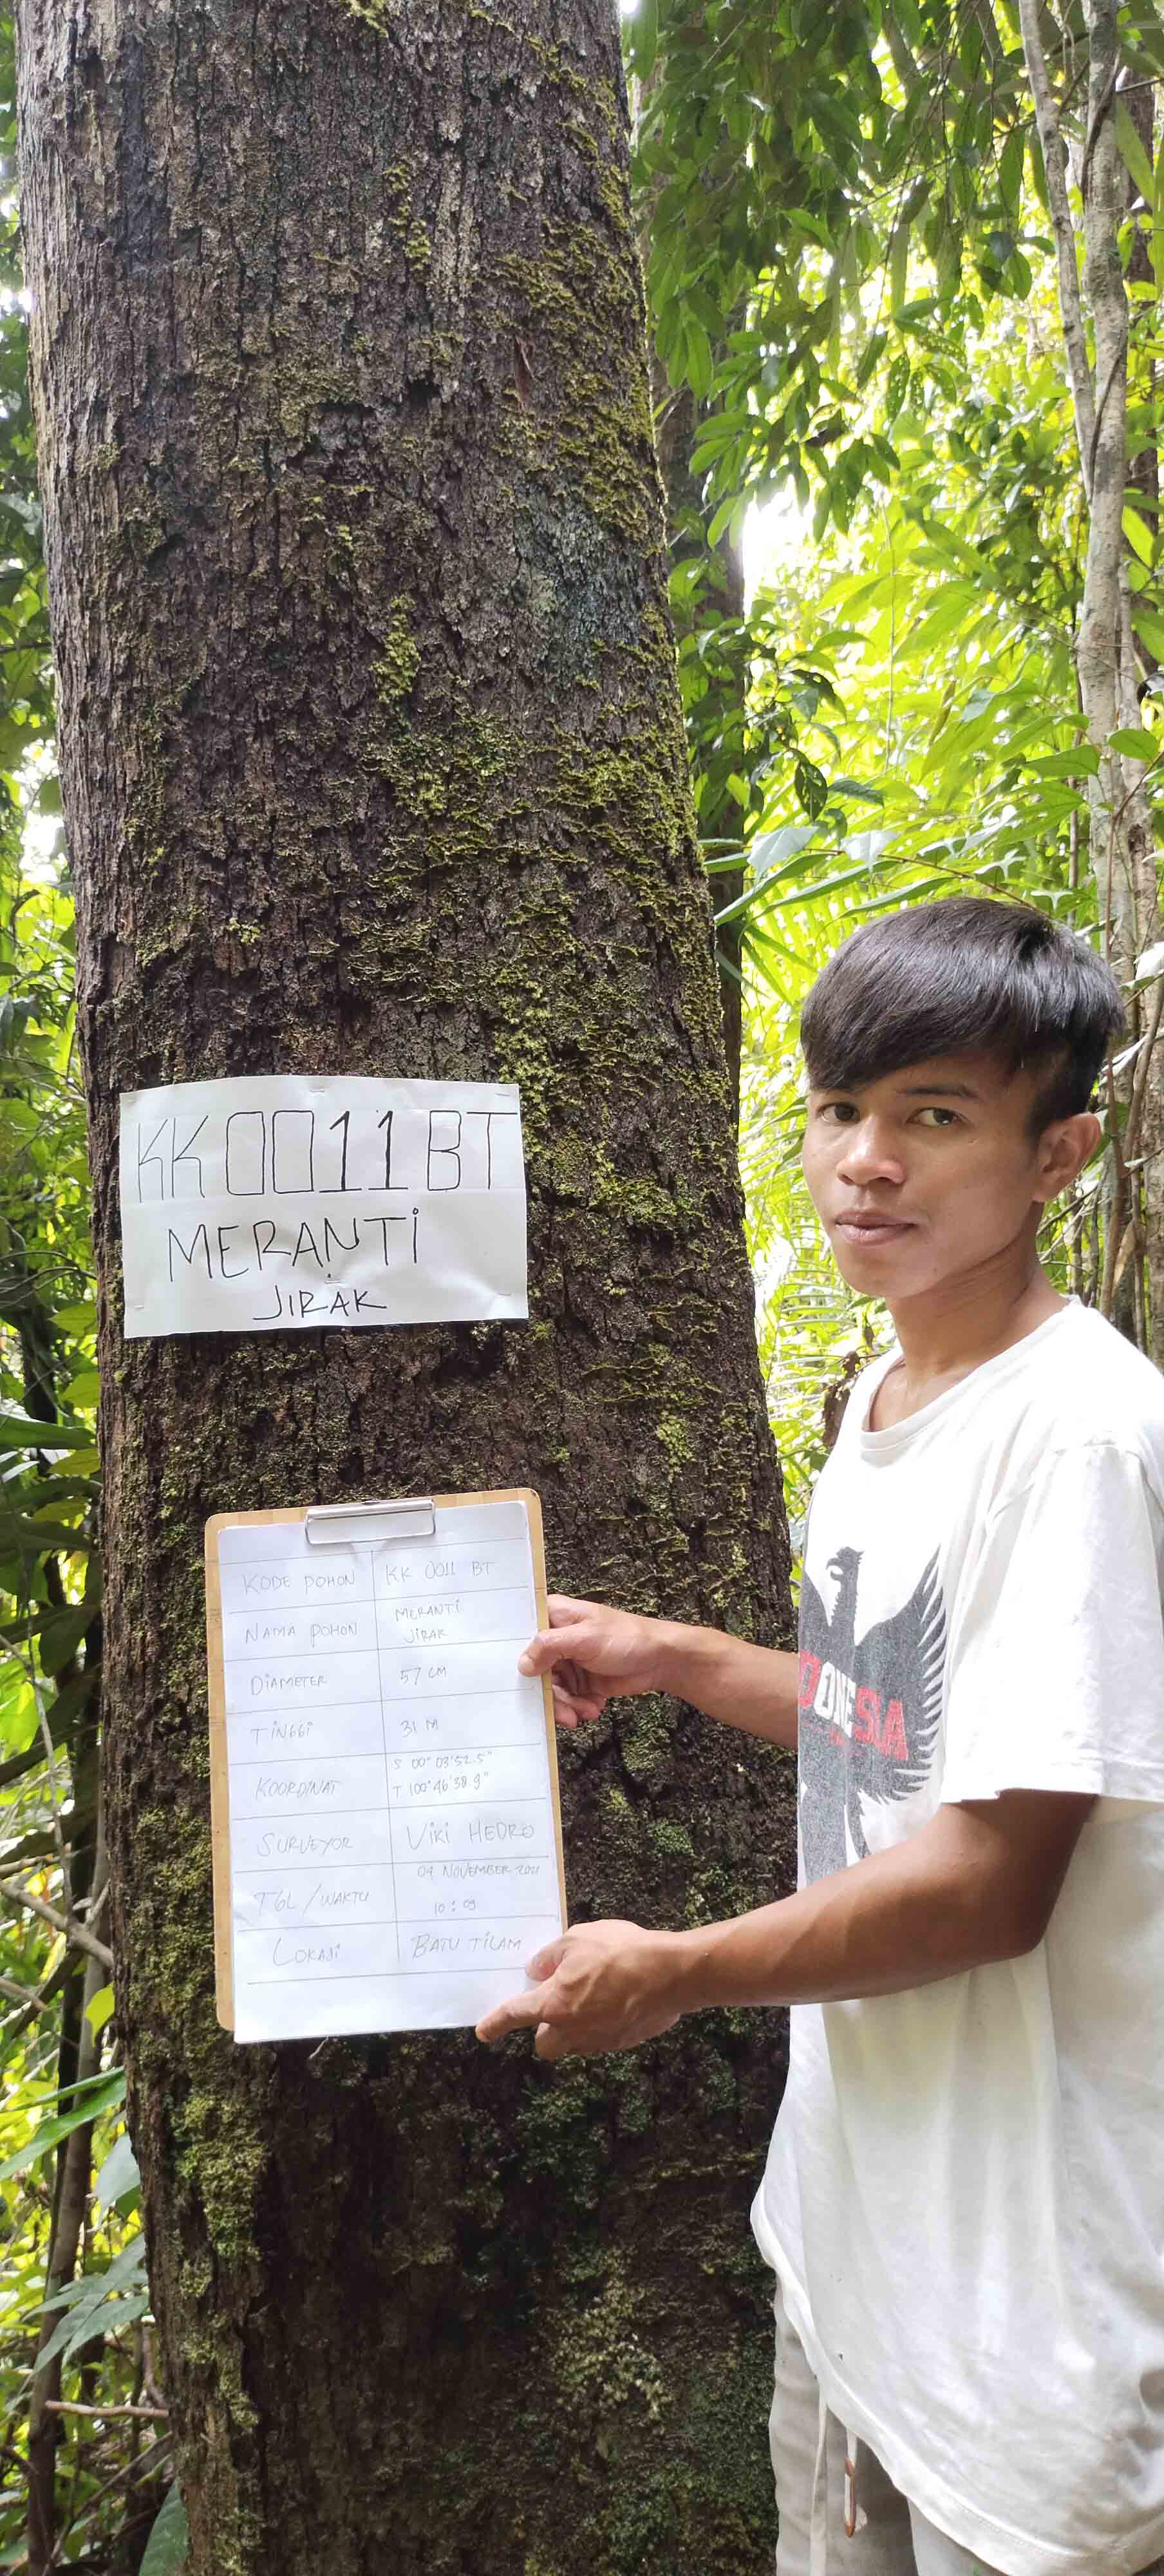 KK0011BT
MERANTi
JIRAK
KODE POHON KK 0011 BT
NAMA POHON MERANTi JiRAK
DiAMETER 57 CM
TiNGGi 31 M
KOORDiNAT S 00° 03' 52.5"
T 100° 46' 38.9"
SURVEYOR ViKi HEDRO
TGL / WAKTU NOVEMBER 2021
10 : 09
LOKASi BATU TiLAM
ONESIA